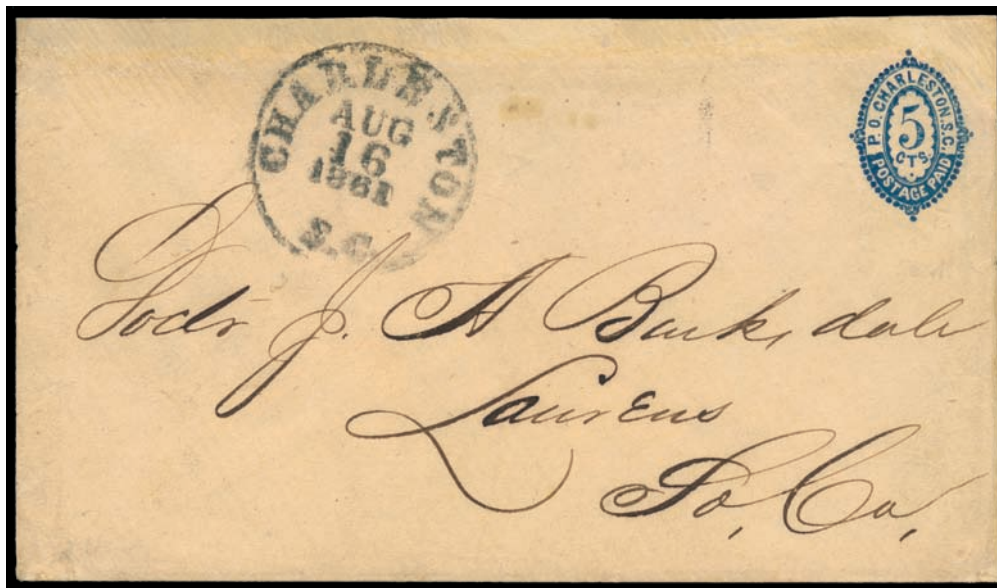 CHARLESTON
AUG
16
1861
S.C.
P.O. CHARLESTON. S.C.
5
CTS.
POSTAGE PAID
Doctr J. A Barksdale
Laurens
So, Ca,